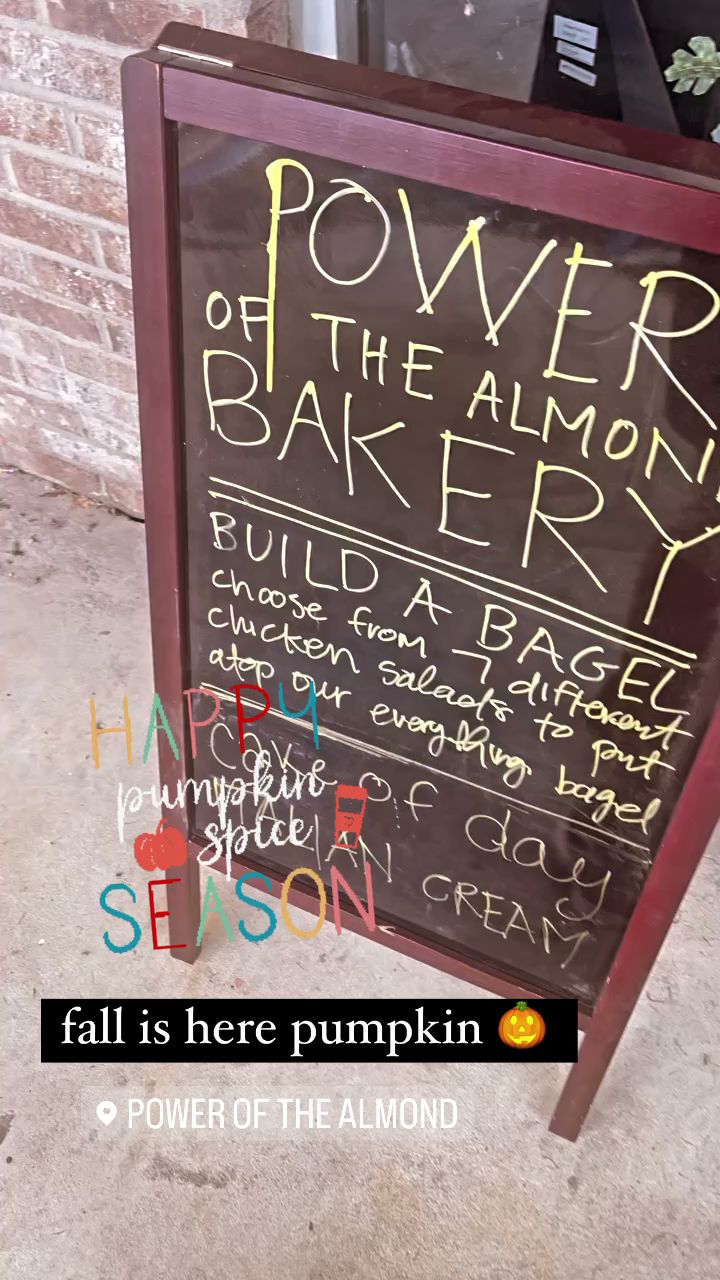 POWER
OF THE ALMOND
BAKERY
BUILD A BAGEL
choose from 7 different
chicken salads to put
atop our everything bagel
of day
CREAM
HAPPY
pumpkin
spice
SEASON
fall is here pumpkin 🎃
POWER OF THE ALMOND